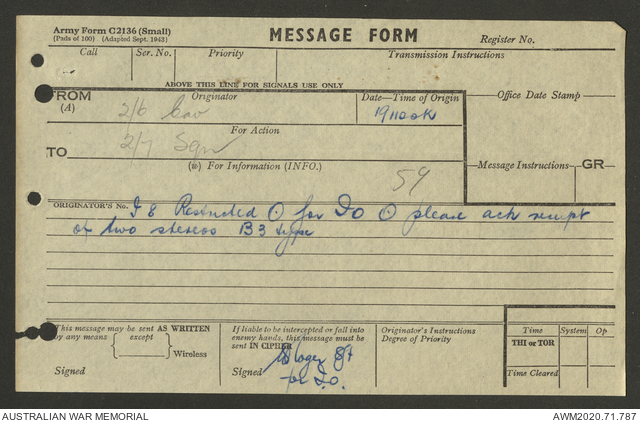 Army Form C2136 (Small)
(Pads of 100) (Adapted Sept. 1943)
MESSAGE FORM
Register No.
Call Ser. No. Priority Transmission Instructions
ABOVE THIS LINE FOR SIGNALS USE ONLY
FROM
(A)
Originator
2/6 Cav
Date—Time of Origin
191100K
Office Date Stamp
For Action
TO
2/7 Sqn
(w) For Information (INFO.)
59
Message Instructions
GR
ORIGINATOR'S No.
I 8 Restricted O for IO O please ack receipt
of two stereos B3 type
This message may be sent AS WRITTEN
by any means except
Wireless
Signed
If liable to be intercepted or fall into
enemy hands, this message must be
sent IN CIPHER
Signed
for I.O.
Originator's Instructions
Degree of Priority
Time System Op
THI or TOR
Time Cleared
AUSTRALIAN WAR MEMORIAL
AWM2020.71.787